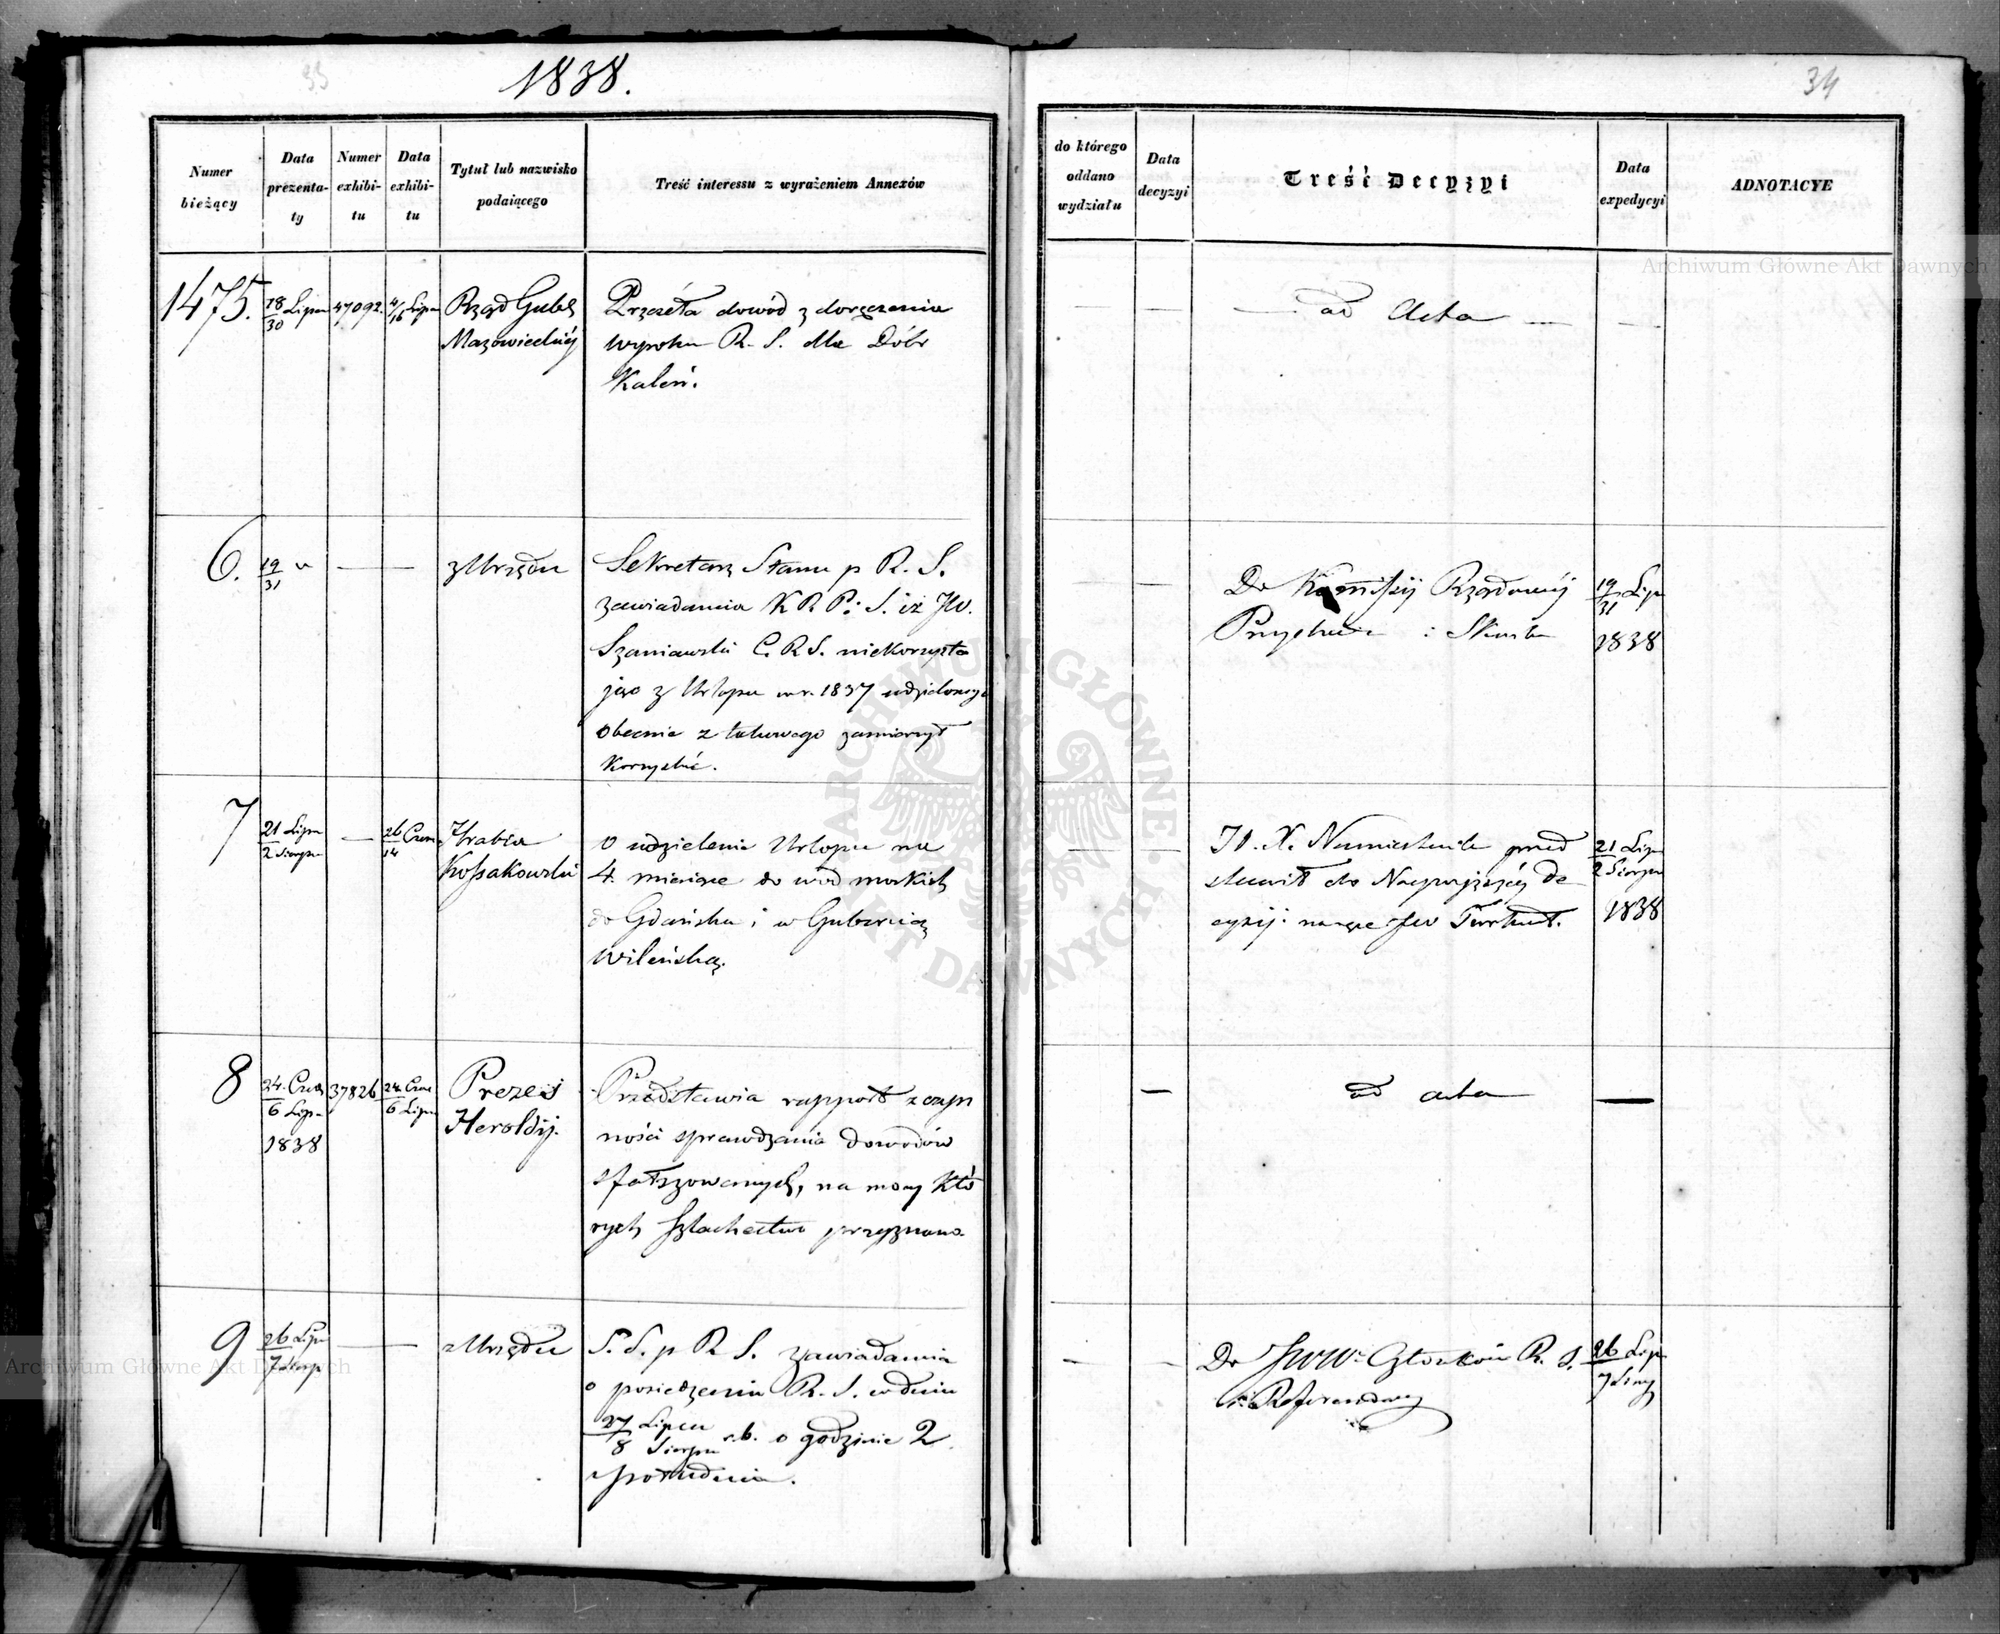 33
1838.
34
Numer bieżący
Data prezentaty
Numer exhibitu
Data exhibitu
Tytuł lub nazwisko podaiącego
Treść interessu z wyrażeniem Annexów
do którego oddano wydziału
Data decyzyi
Treść Decyzyi
Data expedycyi
ADNOTACYE
1475.
18/30 Lipca
47092.
4/16 Lipca
Rząd Gub.
Mazowieckiéj
Przeseła dowód z doręczenia
wyroku R. S. dla Dóbr
Kaleń.
ad Acta
6.
19/31 "
z Urzędu
Sekretarz Stanu p R. S.
zawiadamia K R P. i S. iż JW.
Szaniawski C. R S. niekorzysta
jąc z Urlopu w r. 1837 udzielonego
obecnie z takowego zamierzył
korzystać.
Do Kommissyi Rządowéj
Przychodów i Skarbu
19/31 Lipc
1838
7
21 Lipca
2 Sierpn
26 Czerw
14
Hrabia
Kossakowski
O udzielenie Urlopu na
4. miesiące do wód morskich
do Gdańska i w Gubernią
Wileńską.
JO. X. Namiestnik przed
stawił do Naywyższéy de
cyzij na ręce JW Turkuł.
21 Lipca
2 Sierpn
1838
8
24. Czerw
6 Lipca
1838
37826
24 Czerw
6 Lipca
Prezes
Heroldij.
Przedstawia rapport z czyn
ności sprawdzania dowodów
sfałszowanych, na mocy któ
rych szlachectwo przyznano
ad acta
9
26 Lipca
7 Sierp
z Urzędu
S. S. p R S. zawiadamia
o posiedzeniu R. S. w dniu
27 Lipca
8 Sierpn r.b. o godzinie 2
z południa.
Do JWW. Członków R. S.
i Referendarzy
26 Lipc
7 Sierp
Archiwum Główne Akt Dawnych
Archiwum Główne Akt Dawnych
ARCHIWUM GŁÓWNE AKT DAWNYCH